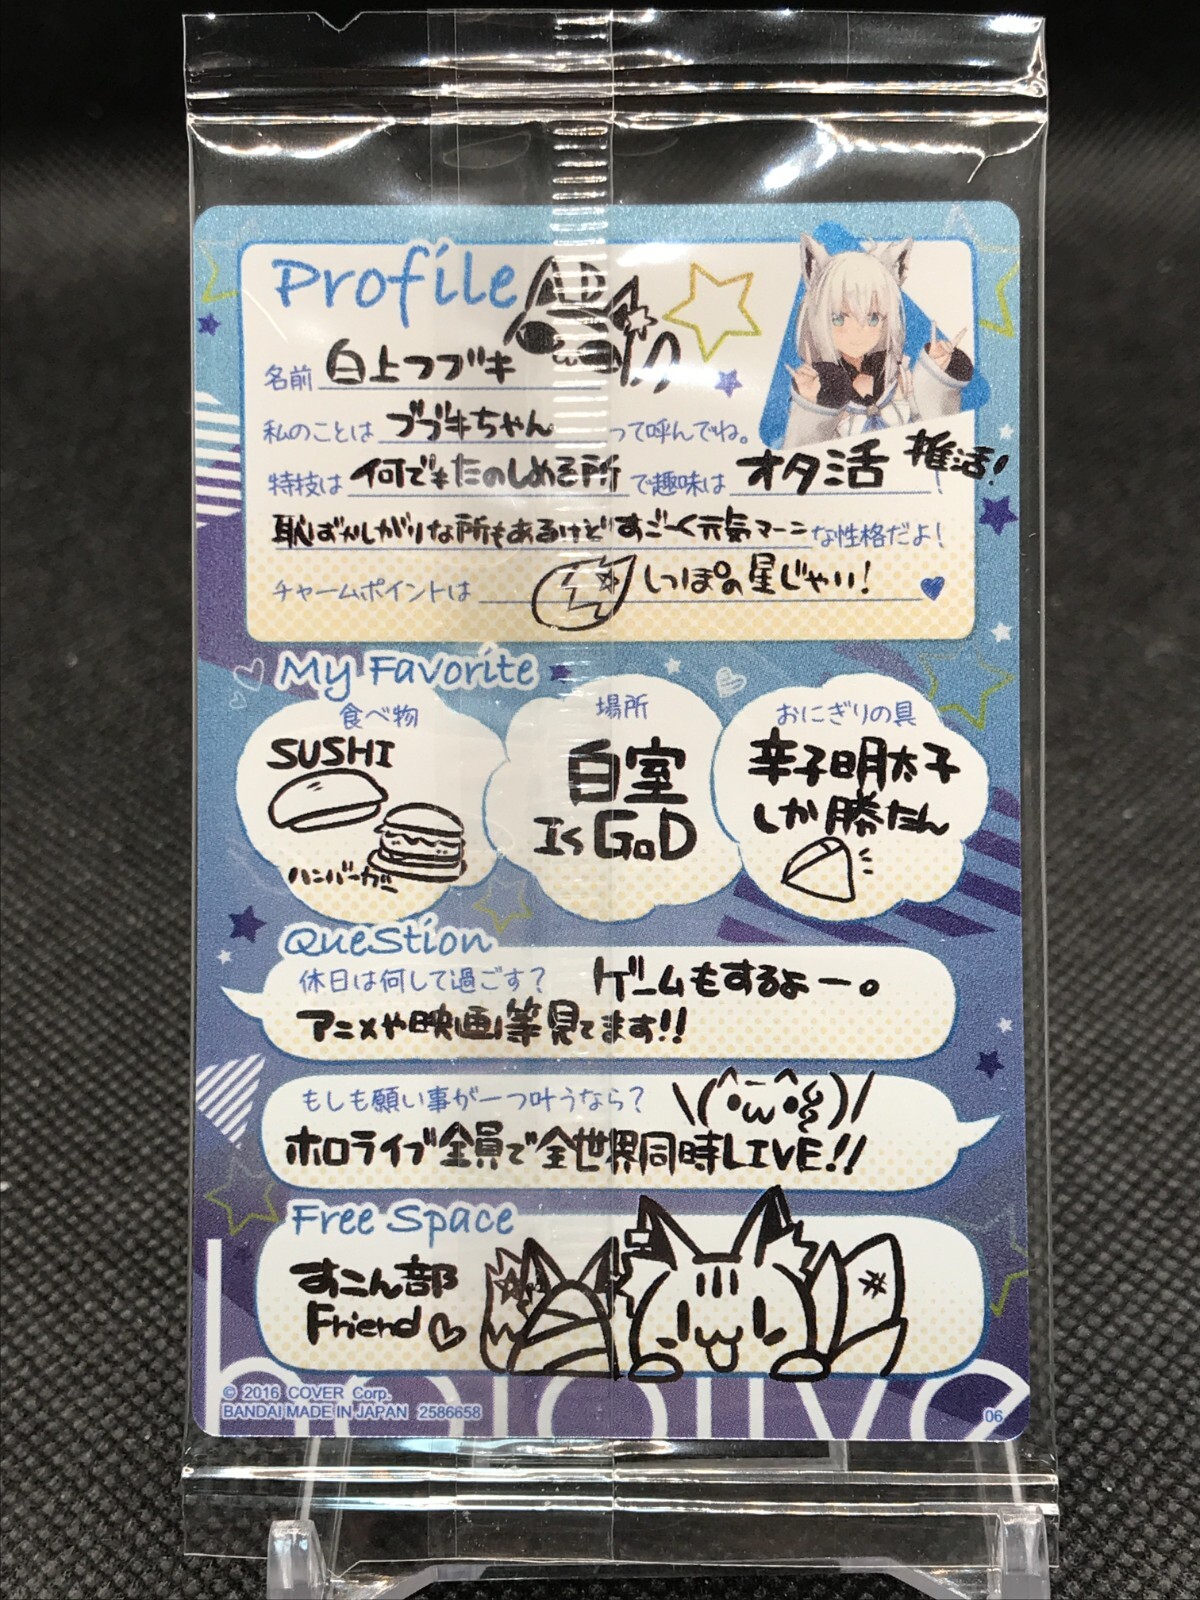 Profile
名前 白上フブキ
私のことは フブキちゃん って呼んでね。
特技は 何でもたのしめる所 で趣味は オタ活 推活! !
恥ずかしがりな所もあるけど すごーく元気マーン な性格だよ!
チャームポイントは しっぽの星じゃい!
My Favorite
食べ物
SUSHI
ハンバーガー
場所
自室
Is GoD
おにぎりの具
辛子明太子
しか勝たん
Question
休日は何して過ごす? ゲームもするよー。
アニメや映画等見てます!!
もしも願い事が一つ叶うなら?
ホロライブ全員で全世界同時LIVE!!
Free Space
すこん部
Friend♡
hololive
© 2016 COVER Corp.
BANDAI MADE IN JAPAN 2586658
06